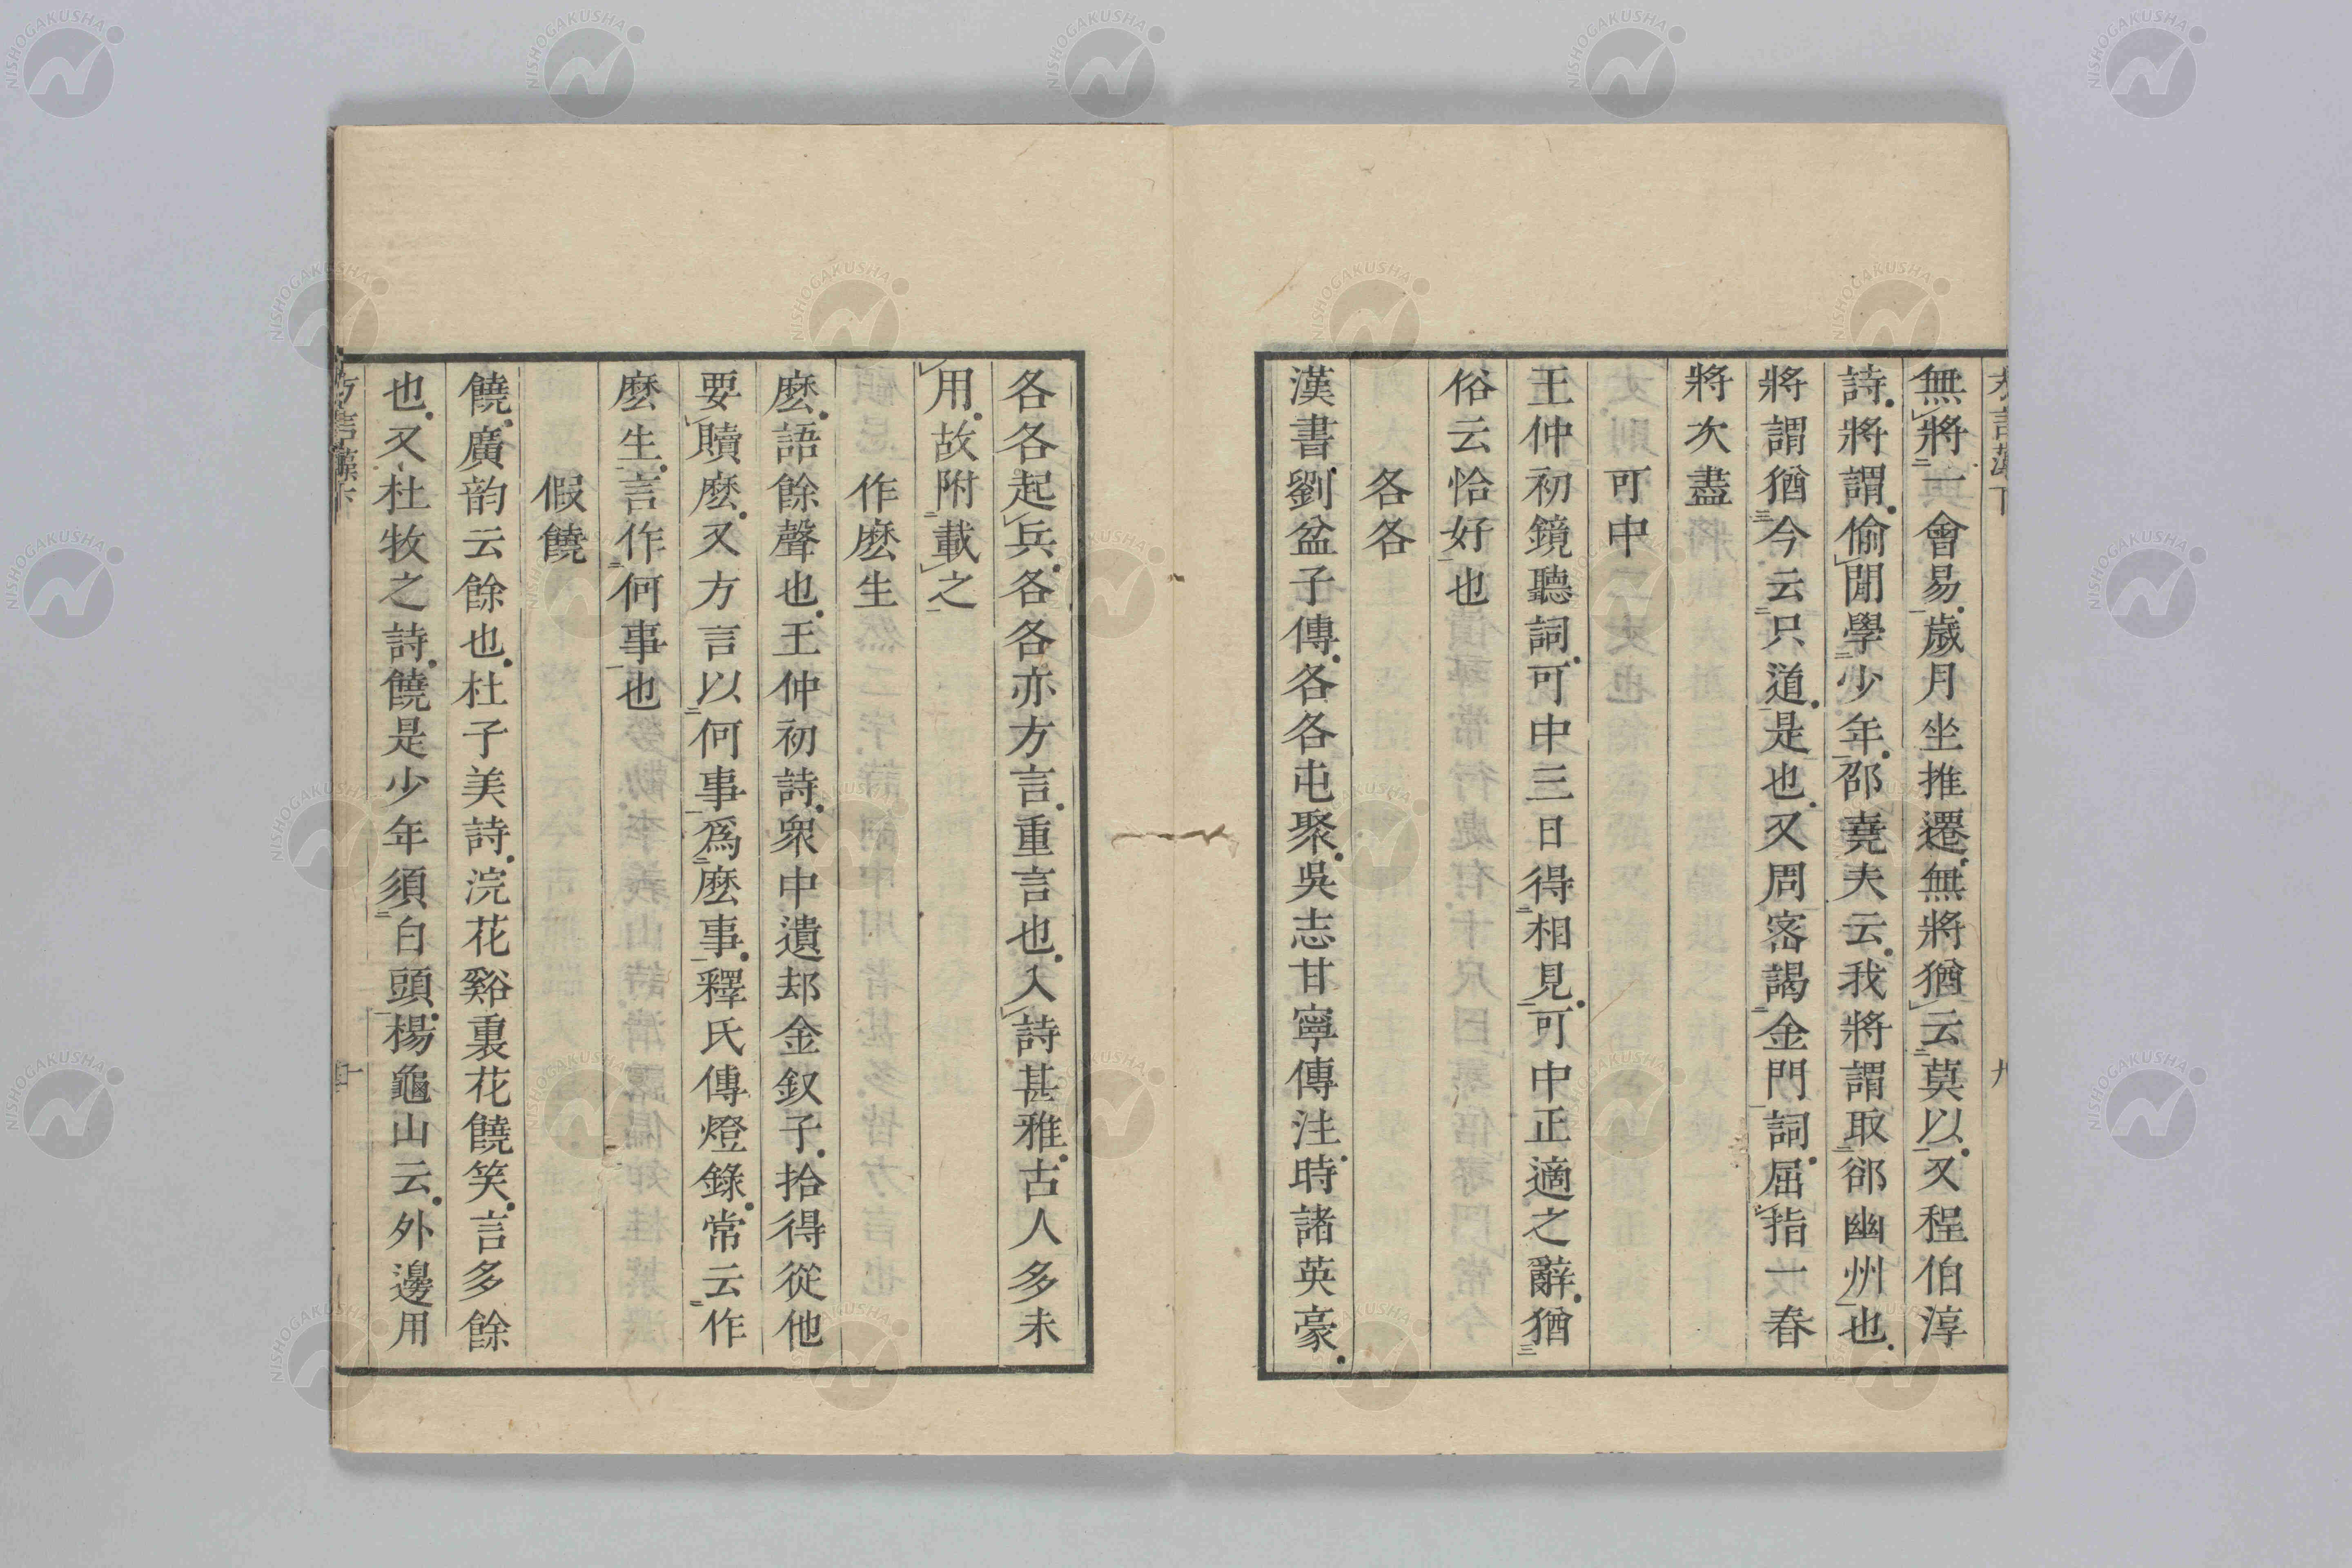 無將一會易歲月坐推遷無將猶云莫以又程伯淳
詩將謂偷閒學少年邵堯夫云我將謂取卻幽州也
將謂猶今云只道是也又周密謁金門詞屈指一春
將次盡
可中
王仲初鏡聽詞可中三日得相見可中正適之辭猶
俗云恰好也
各各
漢書劉盆子傳各各屯聚吳志甘寧傳注時諸英豪
各各起兵各各亦方言重言也入詩甚雅古人多未
用故附載之
作麽生
麽語餘聲也王仲初詩衆中遺却金釵子拾得從他
要贖麽又方言以何事爲麽事釋氏傳燈錄常云作
麽生言作何事也
假饒
饒廣韵云餘也杜子美詩浣花谿裏花饒笑言多餘
也又杜牧之詩饒是少年須白頭楊龜山云外邊用
方言藻下
十
NISHOGAKUSHA